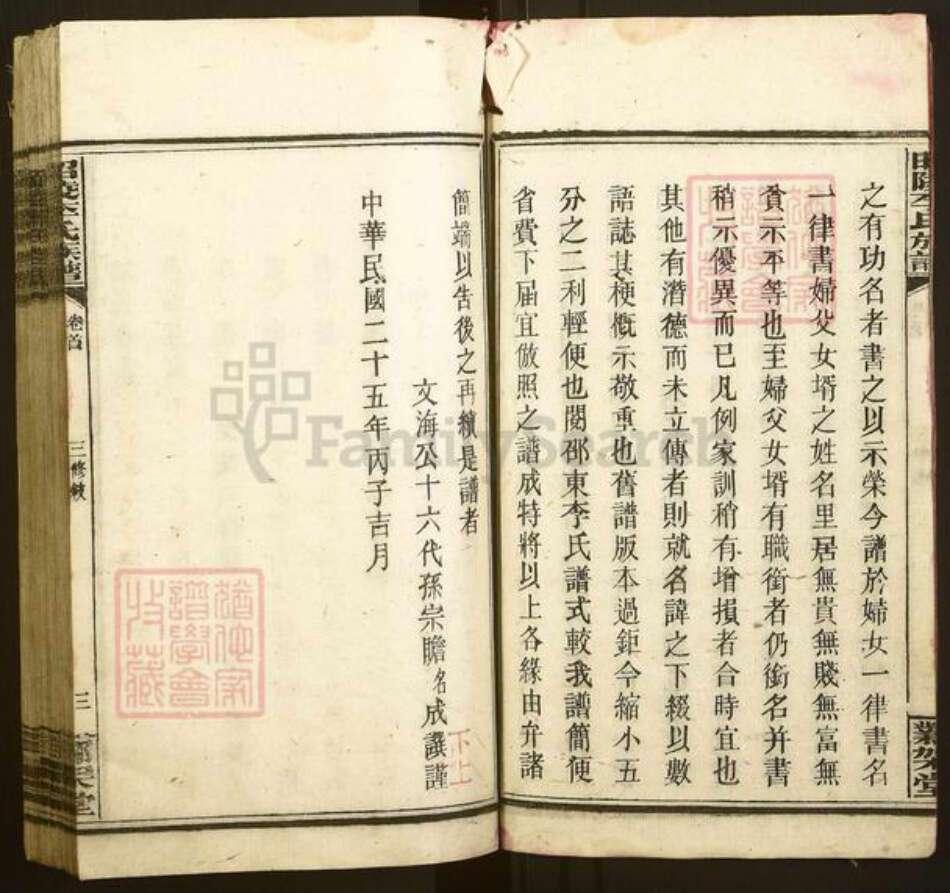 之有功名者書之以示榮今譜於婦女一律書名
一律書婦父女壻之姓名里居無貴無賤無富無
貧示平等也至婦父女壻有職銜者仍銜名并書
稍示優異而已凡例家訓稍有增損者合時宜也
其他有潛德而未立傳者則就名諱之下綴以數
語誌其梗概示敬重也舊譜版本過鉅今縮小五
分之二利輕便也閱邵東李氏譜式較我譜簡便
省費下届宜倣照之譜成特將以上各緣由弁諸
簡端以告後之再續是譜者
文海公十六代孫宗瞻名成譔謹
下上
中華民國二十五年丙子吉月
昭陵李氏族譜
卷首
三修
三
堂
昭陵李氏族譜
堂
譜學會
收藏
FamilySearch